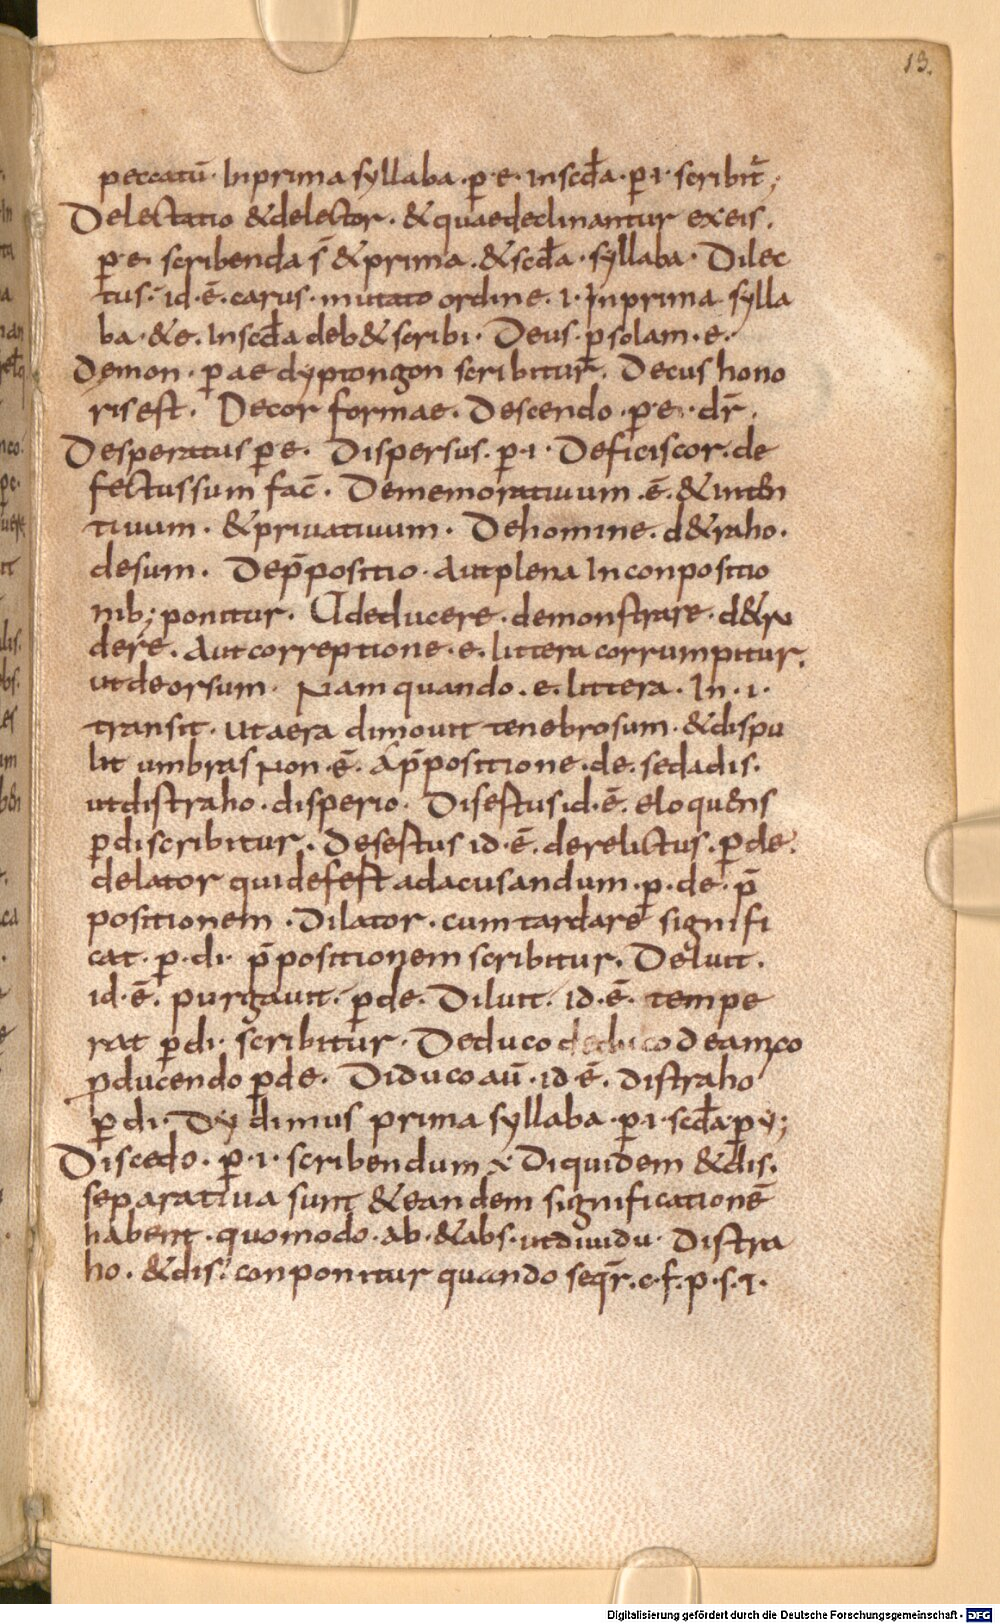 13.
peccatū· Inprima syllaba·p̱·e· inscd̄a·p̱·i·scribit̄;
Delectatio &delector·&quaedeclinantur exeis.
p̱·e· scribenda s̄ &prima·&scd̄a·syllaba· Dilec
tus· id·ē·carus·mutato ordine·i·Inprima sylla
ba·&e·Inscd̄a deb&scribi· Deus·p̱solam·e·
Demon·p̱ae dyptongon scribitur· Decus hono
ris est· Decor formae· Descendo·p̱·e·dr̄.
Desperatus p̱e· Dispersus·p̱·i· Deficiscor·de
fectussum fac̄· Dememoratiuum·ē·&inten
tiuum·&priuatiuum· Dehomine·d&raho·
desum· Dep̄positio·Autplena Inconpositio
nib; ponitur· Ut deducere·demonstrare·d&ru
dere·Autcorreptione·e·littera corrumpitur,
utdeorsum· Namquando·e·littera·In·i·
transit·ut aera dimouit tenebrosum·&dispu
lit umbras Non·ē·Ap̄positione·de·sedadis·
utdistraho·disperio· Disertus id·ē·eloquens
p̱discribitur· Desertus id·ē·derelictus·p̱de·
delator quidefert adacusandum·p̱·de·p̄
positionem· Dilator·cumtardare signifi
cat·p̱·di·p̄positionem scribitur· Deluit·
id·ē·purgauit·p̱de· Diluit·id·ē·tempe
rat p̱di·scribitur· Deduco deduco deamico
p̱ducendo p̱de· Diduco aū·id·ē·distraho
p̱di· Dydimus prima syllaba·p̱·i·scd̄a·p̱y;
Discedo·p̱·i·scribendum x Diquidem &dis·
separatiua sunt &eandem significationē
habent·quomodo·ab·&abs·utdiuidu· Distra
ho·&dis·conponitur quando seqr̄·c·f·p·s·i·
Digitalisierung gefördert durch die Deutsche Forschungsgemeinschaft - DFG